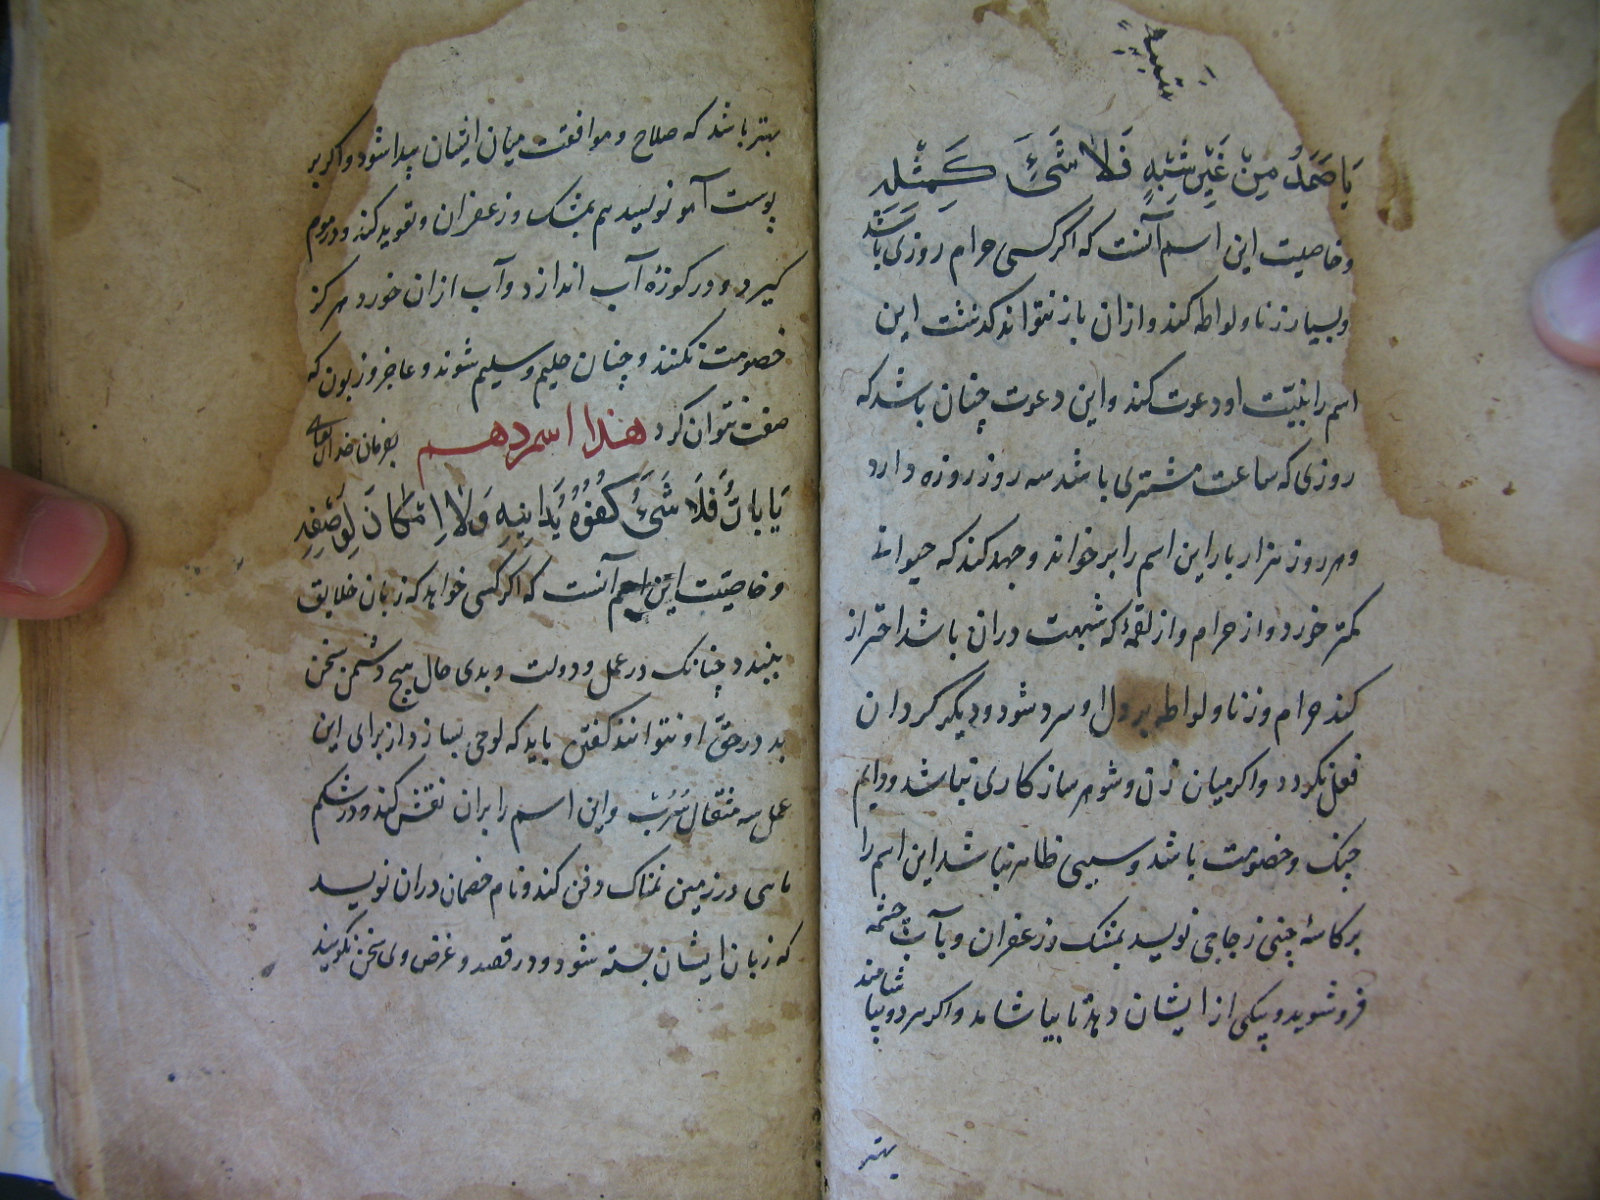 یَا صَمَدُ مِنْ غَیْرِ شَبِهٍ فَلَا شَیْءَ کَمِثْلِهِ
وخاصیت این اسم آنست که اکر کسی حرام روزی باشد
وبسیار زنا ولواطه کند وازان باز نتواند کذشت این
اسم را بنیّت او دعوت کند واین دعوت چنان باشد که
روزی که ساعت مشتری باشد سه روز روزه دارد
وهر روز هزار بار این اسم را برخواند وجهد کند که حیوانی
کمتر خورد واز حرام واز لقمهٔ که شبهت دران باشد احتراز
کند حرام وزنا ولواطه بر دل او سرد شود ودیکر کرد ان
فعل نکردد واکر میان زن وشوهر سازکاری نباشد ودایم
جنک وخصومت باشد وسببی ظاهر نباشد این اسم را
بر کاسهٔ چینی زجاجی نویسد بمشک وزعفران وبآب چشمه
فرو شوید ویکی از ایشان دهد تا بیاشامد واکر هر دو بیاشامند
بهتر
بهتر باشد که صلاح وموافقت میان ایشان پیدا شود واکر بر
پوست آهو نویسد هم بمشک وزعفران وتعوید کند ودر موم
کیرد ودر کوزهٔ آب اندازد وآب ازان خورد هرکز
خصومت نکنند وچنان حلیم وسلیم شوند وعاجز وزبون که
صفت نتوان کرد هذا اسم دهم بفرمان خدای تعالی
یَا بَارُّ فَلَا شَیْءَ کُفُوُهُ یُدَانِیهِ وَلَا اِمْکَانَ لِوَصْفِهِ
وخاصیّت این اسم آنست که اکر کسی خواهد که زبان خلایق
ببندد چنانک در عمل ودولت وبدی حال هیچ دشمن سخن
بد در حقّ او نتوانند کفتن باید که لوحی بسازد از برای این
عمل سه مثقال سُرُب واین اسم را بران نقش کند ودر شکم
ماهی در زمین نمناک دفن کند ونام خصمان دران نویسد
که زبان ایشان بسته شود ودر قصد وغرض وی سخن نکویند